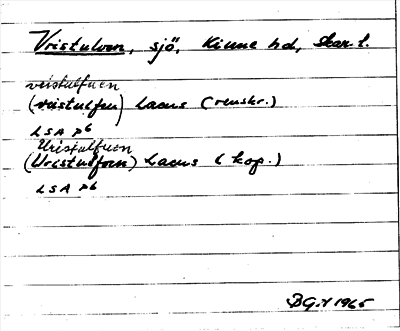 Vristulven, sjö, Kinne hd, Skar. l.
vristulfuen
(vristulfen) Lacus (renskr.)
LSA P6
Uristulfuen
(Uristulfoen) Lacus (kop.)
LSA P6
1965